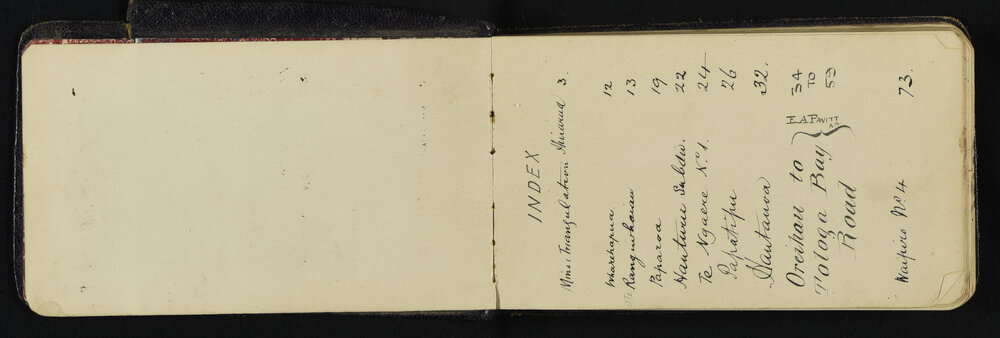 INDEX
Minor Triangulation Huiarua 3
Wharekapua 12
Te Rangiwhaian 13
Paparoa 19
Hauturu Subdn 22
Te Ngaere No. 1. 24
Papatipu 26
Hautanoa 32.
Oreihau to
Tologa Bay
Road
E A PAVITT
34
TO
59
Waipiro No 4 73.